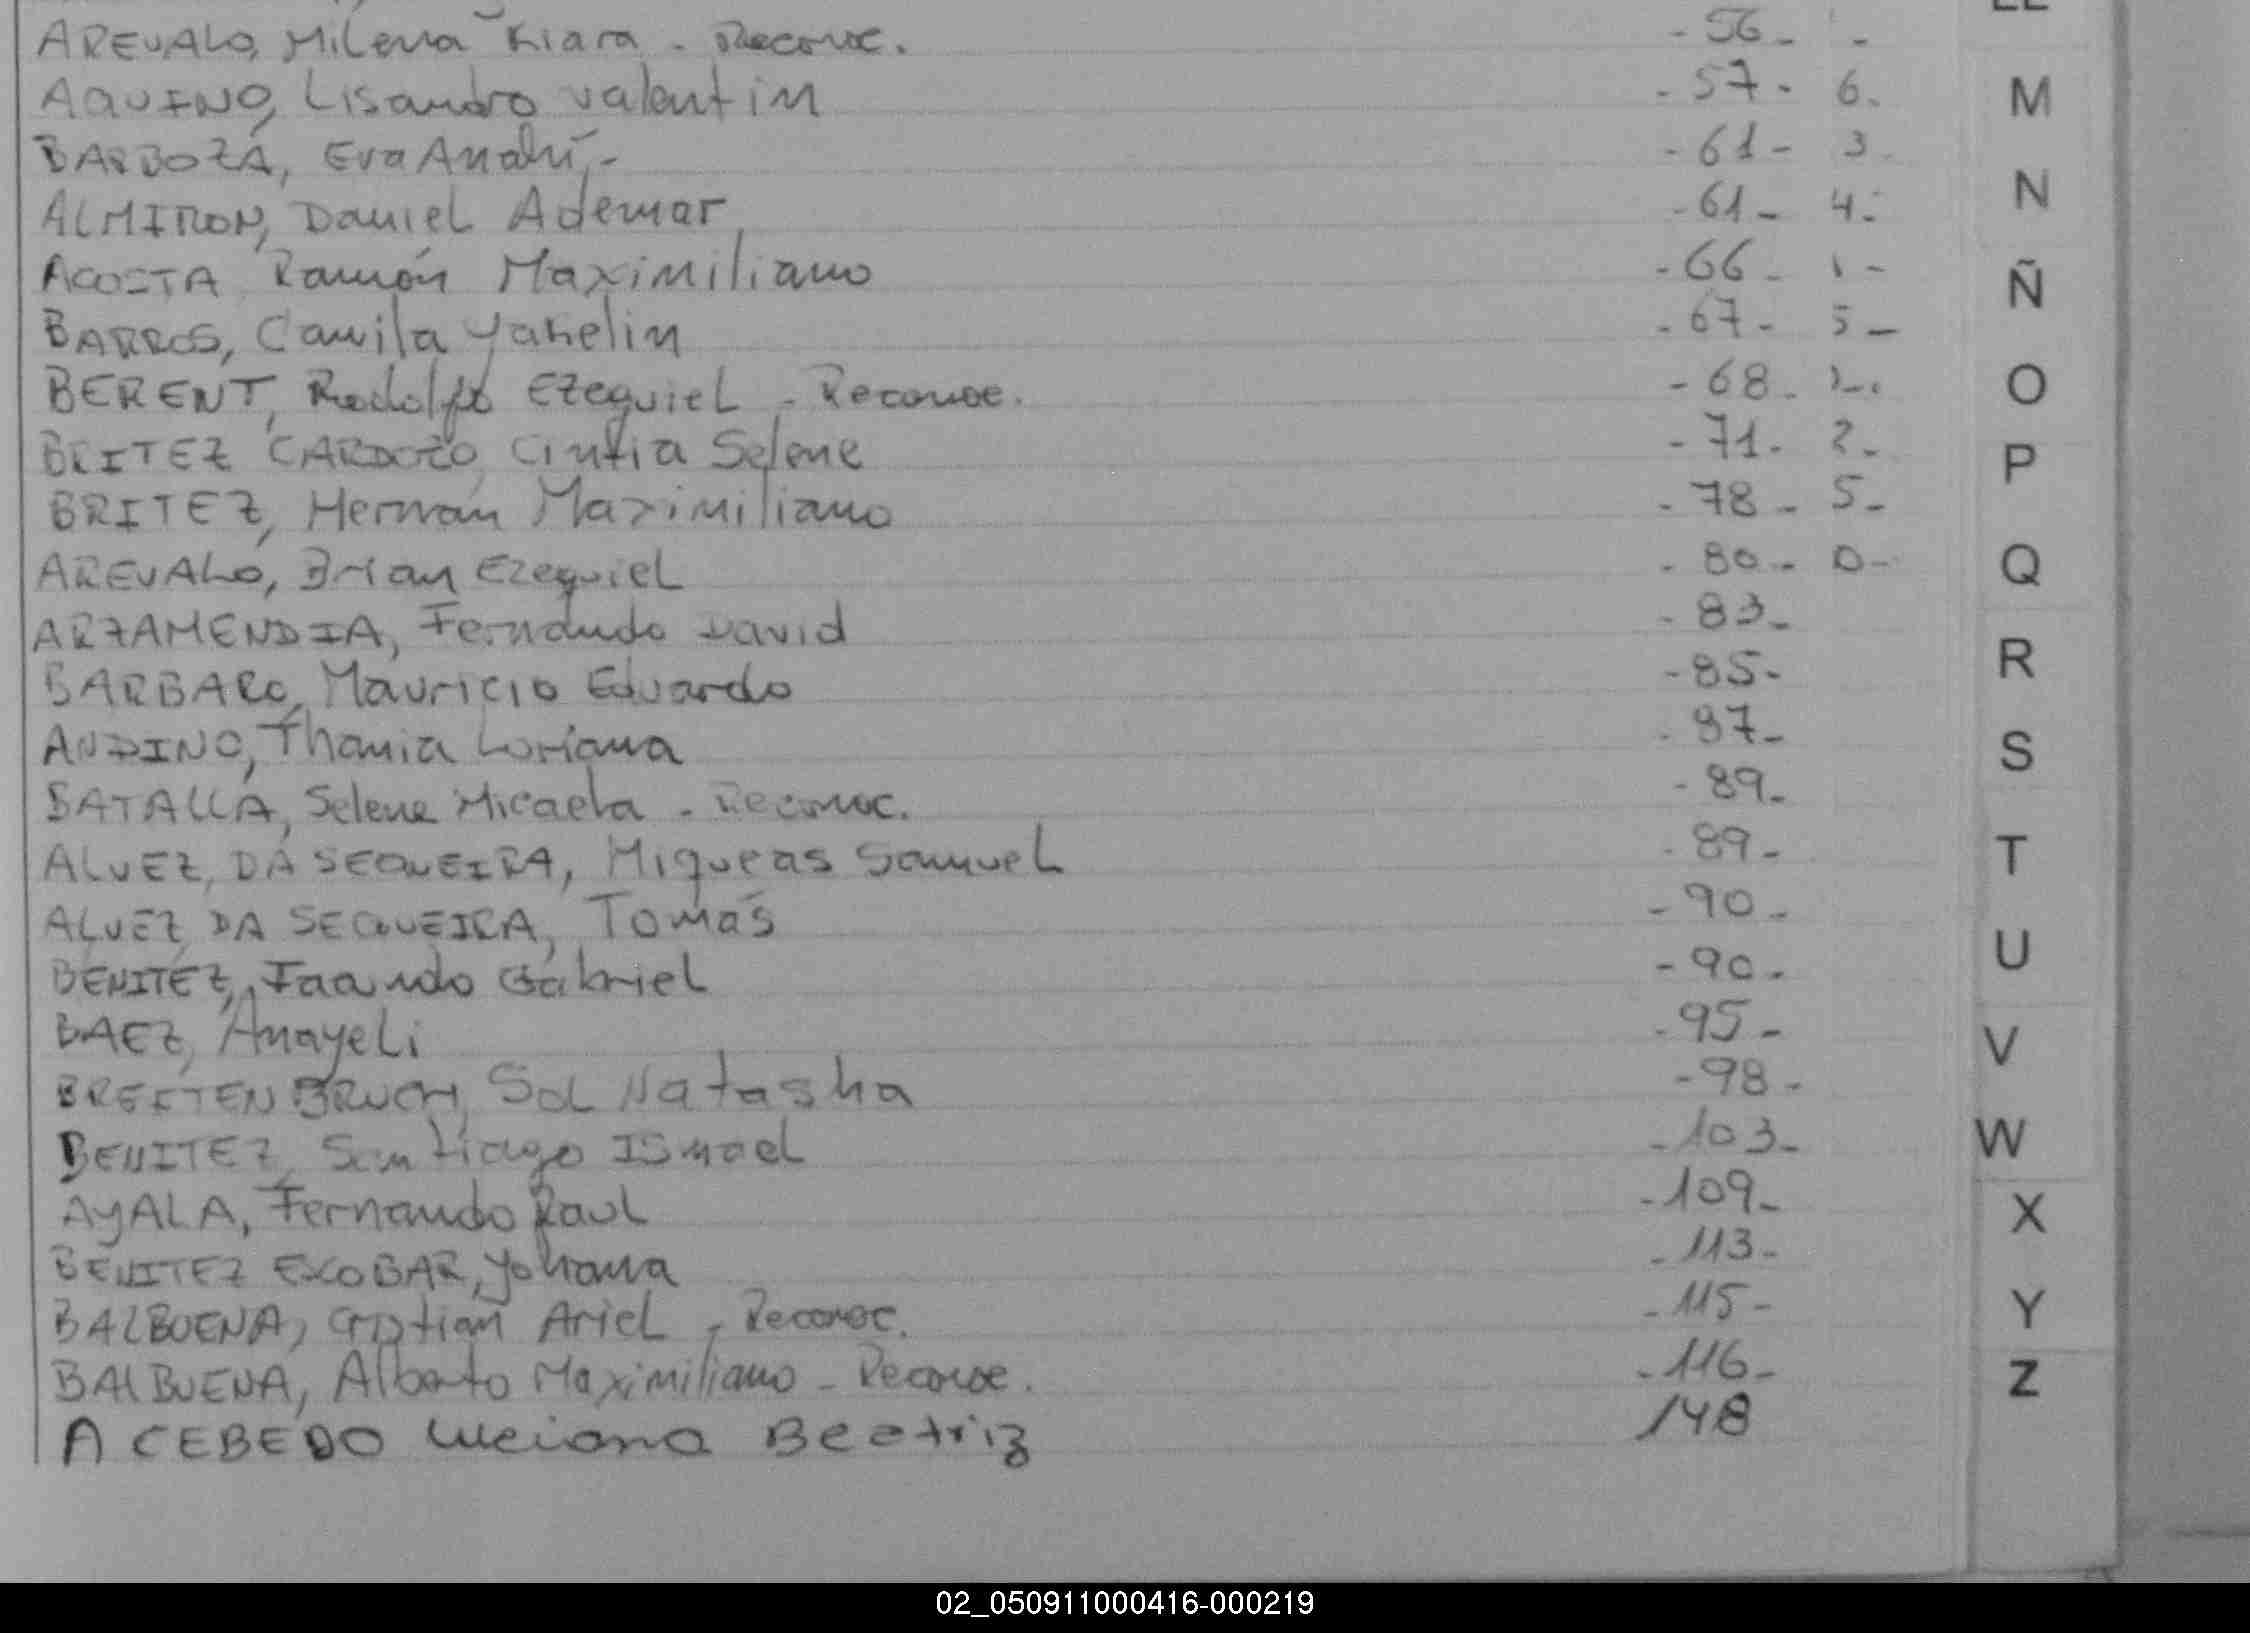 AREVALO, Milena Kiara - Reconoc. - 56 - -
AQUINO, Lisandro Valentin - 57 - 6.
BARBOZA, Eva Anahí - - 61 - 3.
ALMIRON, Daniel Ademar - 61 - 4-
ACOSTA Ramón Maximiliano - 66 - 1 -
BARROS, Camila Yakelin - 67 - 5 -
BERENT, Rodolfo Ezequiel - Reconoc. - 68 -
BRITEZ CARDOZO, Cintia Selene - 71 - 2.
BRITEZ, Hernán Maximiliano - 78 - 5 -
AREVALO, Brian Ezequiel - 80 - 0 -
ARZAMENDIA, Fernando David - 83 -
BARBARO, Mauricio Eduardo - 85 -
ANDINO, Thania Loriana - 87 -
BATALLA, Selene Micaela - Reconoc. - 89 -
ALVEZ, DA SEQUEIRA, Miqueas Samuel - 89 -
ALVEZ DA SEQUEIRA, Tomás - 90 -
BENITEZ, Facundo Gabriel - 90 -
BAEZ, Anayeli - 95 -
BREITENBRUCH, Sol Natasha - 98 -
BENITEZ, Santiago Ismael - 103 -
AYALA, Fernando Raul - 109 -
BENITEZ ESCOBAR, Yohana - 113 -
BALBUENA, Cristian Ariel - Reconoc. - 115 -
BALBUENA, Alberto Maximiliano - Reconoc. - 116 -
ACEBEDO Luciana Beatriz 148
M
N
Ñ
O
P
Q
R
S
T
U
V
W
X
Y
Z
02_050911000416-000219